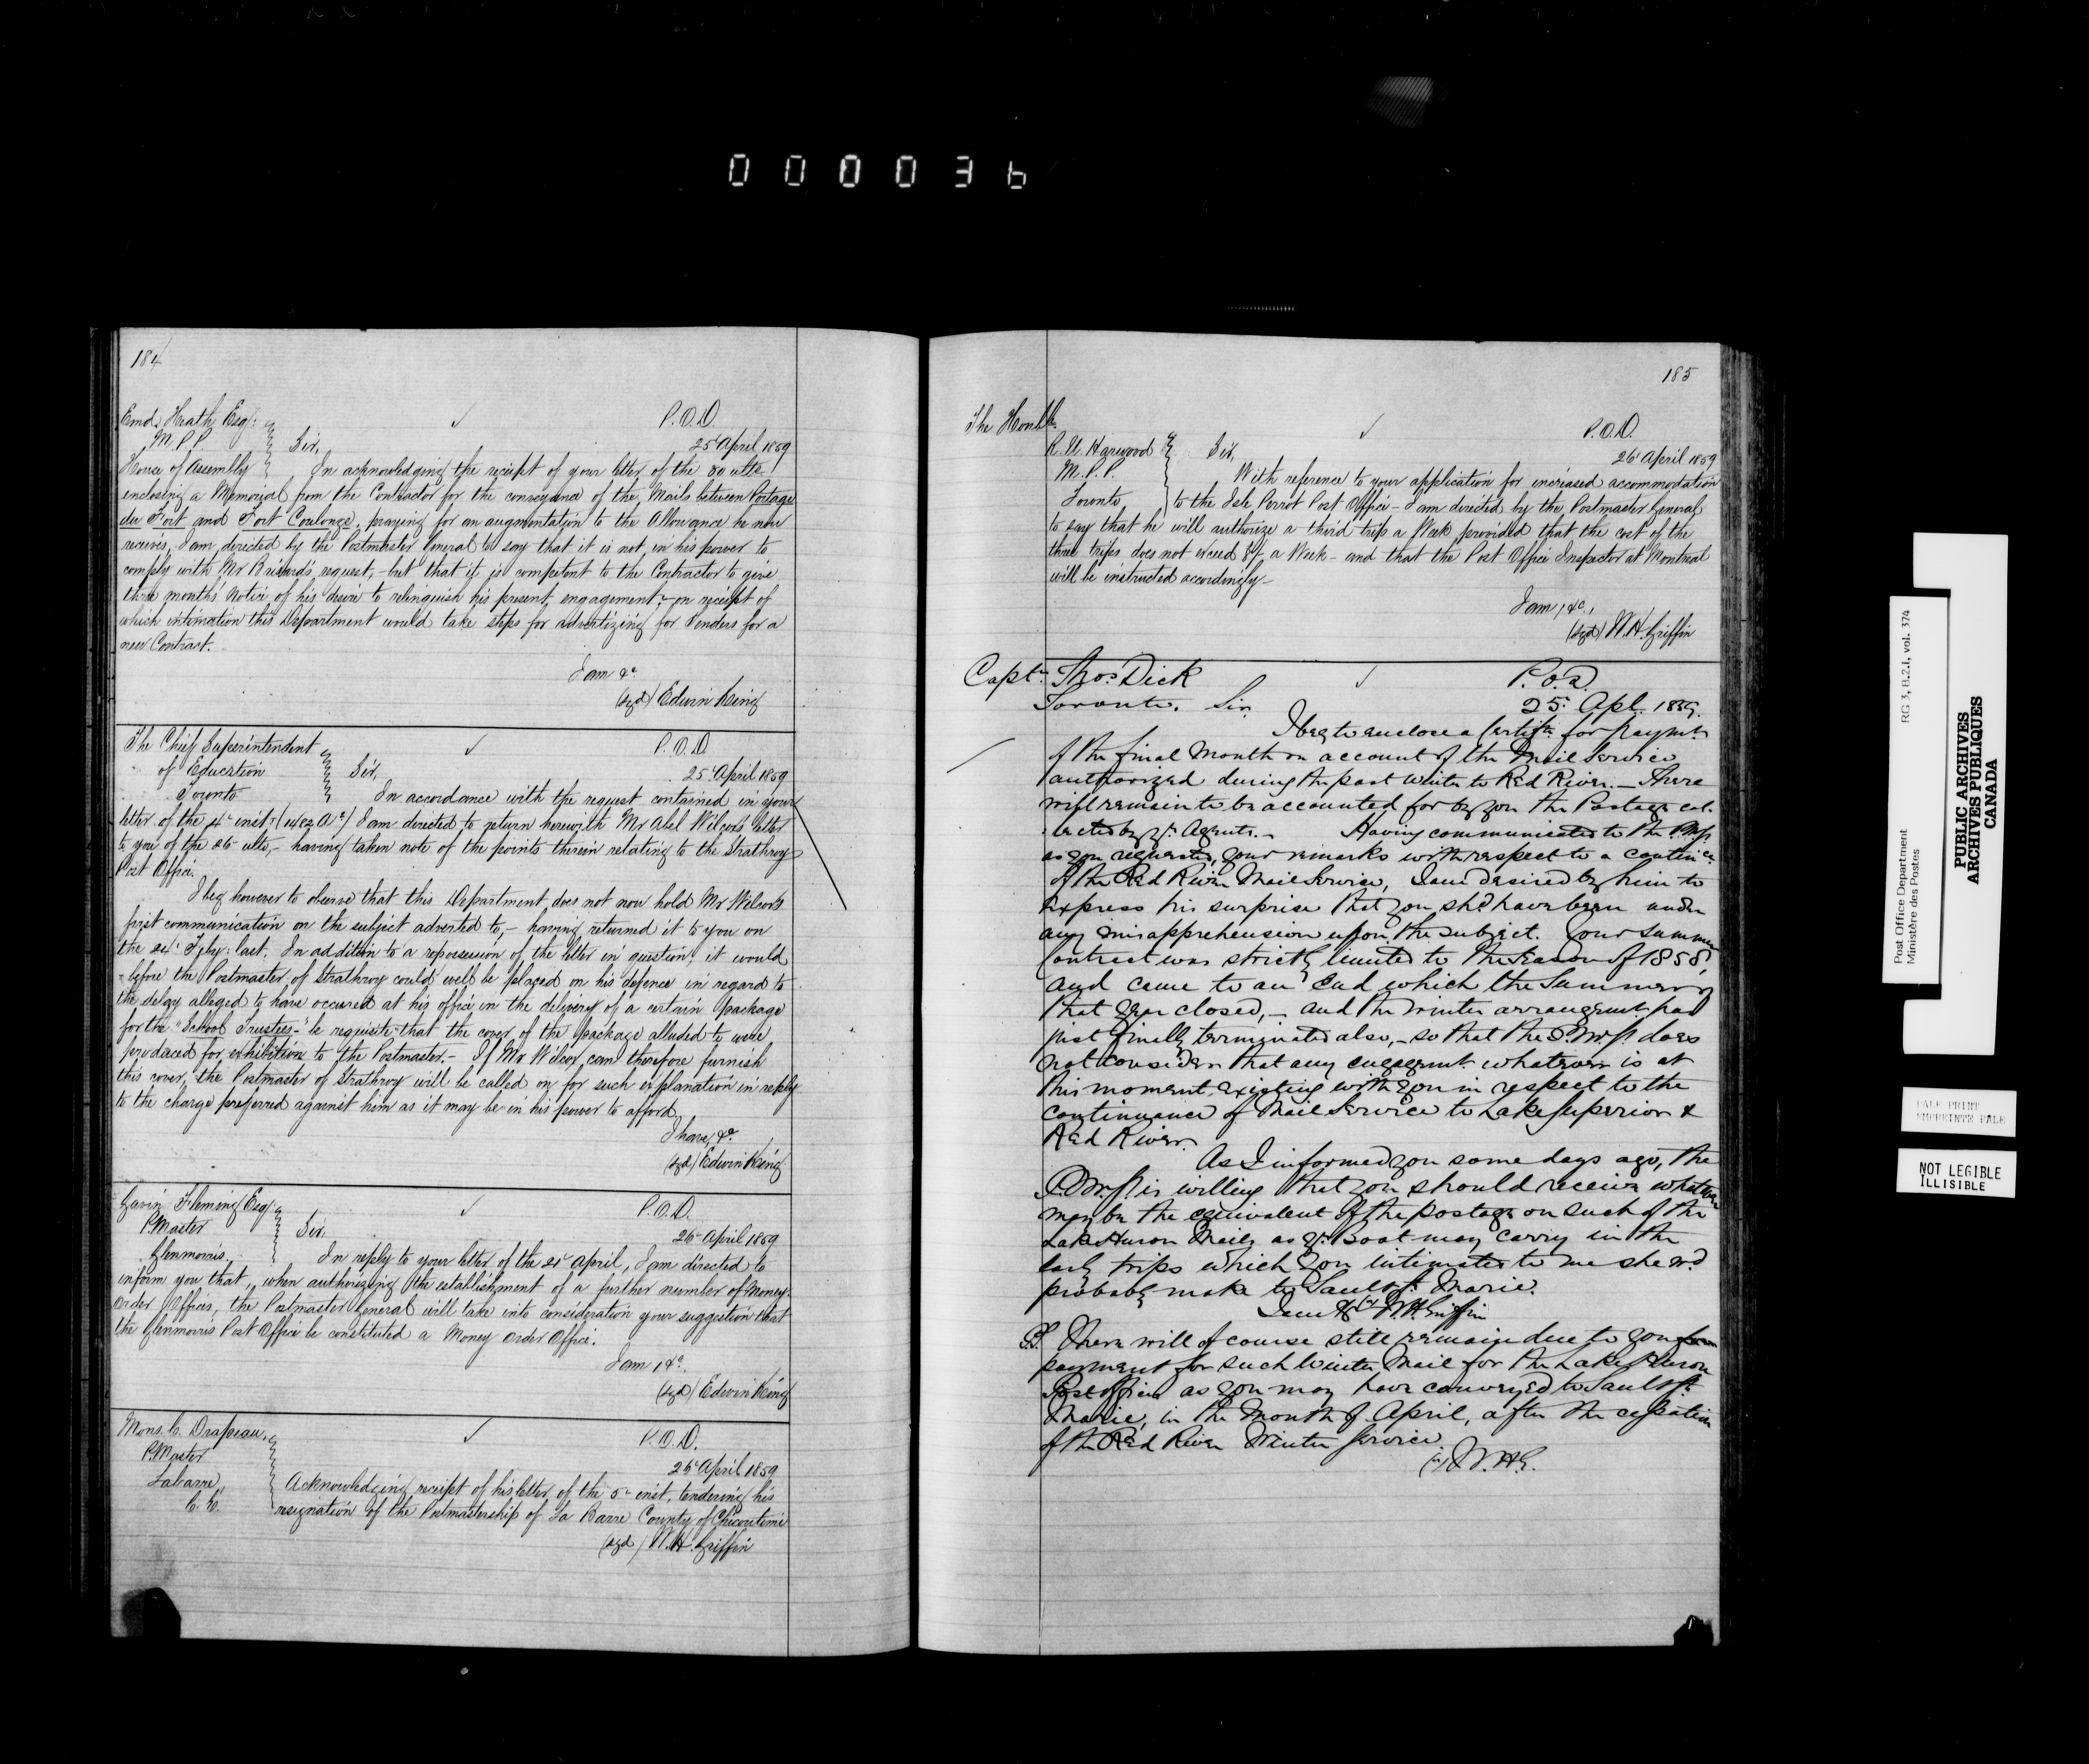 000036
184
Emd. Heath Esq:
M.P.P.
House of Assembly
✓ P.O.D.
25 April 1859
Sir,
In acknowledging the receipt of your letter of the 30 ulto
enclosing a Memorial from the Contractor for the conveyance of the Mails between Portage
du Fort and Fort Coulonge, praying for an augmentation to the Allowance he now
receives, I am directed by the Postmaster General to say that it is not in his power to
comply with Mr request, - but that it is competent to the Contractor to give
three months notice of his desire to relinquish his present engagement, - on receipt of
which intimation this Department would take steps for advertizing for Tenders for a
new Contract.
I am &c
(sgd) Edwin King
The Chief Superintendent
of Education
Toronto
✓ P.O.D.
25 April 1859
Sir,
In accordance with the request contained in your
letter of the 4th inst. I am directed to return herewith Mr Abel Wilcox's letter
to you of the 26 ulto, - having taken note of the points therein relating to the Strathroy
Post Office.
I beg however to observe that this Department does not now hold Mr Wilcox's
first communication on the subject adverted to, - having returned it to you on
the 24 Feby: last. In addition to a repossession of the letter in question, it would
- before the Postmaster of Strathroy could well be placed on his defence in regard to
the delay alleged to have occured at his office in the delivery of a certain package
for the "School Trustees - " be requisite that the cover of the package alluded to were
produced for exhibition to the Postmaster. - If Mr Wilcox can therefore furnish
this cover, the Postmaster of Strathroy will be called on for such explanation in reply
to the charge preferred against him as it may be in his power to afford.
I have, &c
(sgd) Edwin King
Gavin Fleming Esq
P.Master
Glenmorris.
✓ P.O.D.
26 April 1859
Sir,
In reply to your letter of the 21 April, I am directed to
inform you that, when authorizing the establishment of a further number of Money
Order Offices, the Postmaster General will take into consideration your suggestion that
the Glenmorris Post Office be constituted a Money Order Office.
I am, &c.
(sgd) Edwin King
Mons. C. Drapeau,
P.Master
Labarre,
C.E.
✓ P.O.D.
26 April 1859
Acknowledging receipt of his letter of the 5 inst, tendering his
resignation of the Postmastership of La Barre County of Chicoutimi
(sgd) W.H. Griffin
185
The Honble.
R. U. Harwood
M.P.P.
Toronto
✓ P.O.D.
26 April 1859
Sir,
With reference to your application for increased accommodation
to the Isle Perrot Post Office - I am directed by the Postmaster General
to say that he will authorize a third trip a Week provided that the cost of the
three trips does not exceed a Week - and that the Post Office Inspector at Montreal
will be instructed accordingly -
I am, &c.,
(sgd) W.H. Griffin
Captn. Thos. Dick
Toronto.
✓ P.O.D.
25 Apl. 1859.
Sir,
I beg to enclose a Certifte for paymt.
of the final Month on account of the Mail Service
authorized during the past Winter to Red River. - There
will remain to be accounted for by you the Postage col-
lected by yr. Agents. - Having communicated to the P.M.G.
as you requested, your remarks with respect to a contince
of the Red River Mail Service, I am desired by him to
express his surprise that you shd have been under
any misapprehension upon the subject. Your Summer
Contract was strictly limited to the Season of 1858,
and came to an End which the Summer of
that year closed, - and the Winter arrangemt had
just finally terminated also, - so that the P.M.G. does
not consider that any engagemt. whatever is at
this moment existing with you in respect to the
continuance of Mail Service to Lake Superior &
Red River.
As I informed you some days ago, the
P.M.G. is willing that you should receive whatever
may be the equivalent of the postage on such of the
Lake Huron Mails as yr. Boat may carry in the
early trips which you intimated to me she wd
probably make to Sault St. Marie.
I am &c (s) W.H. Griffin
P.S. There will of course still remain due to you
payment for such Winter Mail for the Lake Huron
Post offices as you may have conveyed to Sault St.
Marie, in the Month of April, after the cessation
of the Red River Winter Service
(s) W.H.G.
Post Office Department
Ministère des Postes
RG 3, B.2.I, vol. 374
PUBLIC ARCHIVES
ARCHIVES PUBLIQUES
CANADA
PALE PRINT
EMPREINTE PALE
NOT LEGIBLE
ILLISIBLE